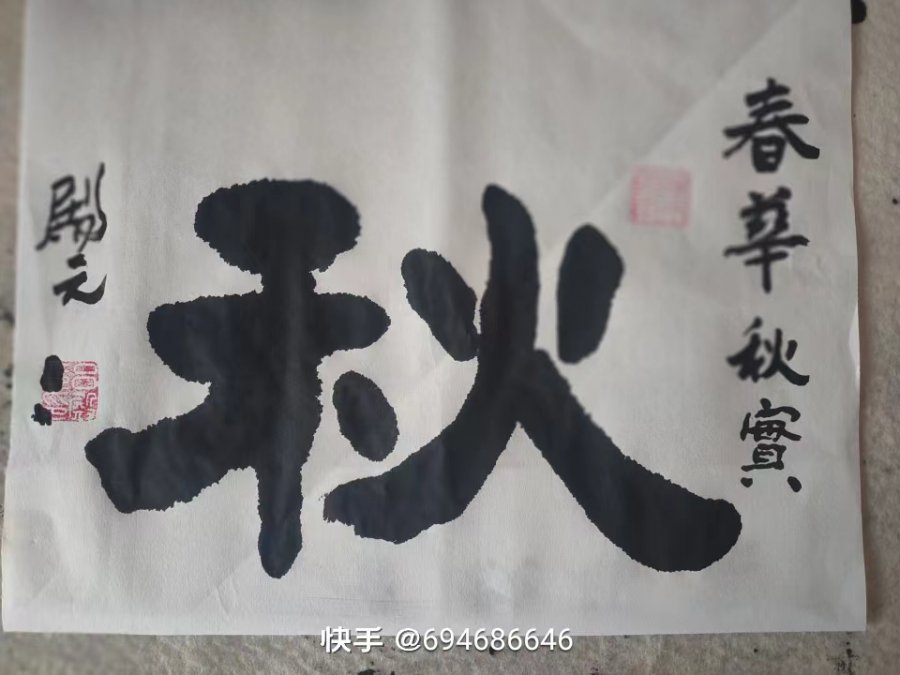 春華秋實
秋
元
快手 @694686646